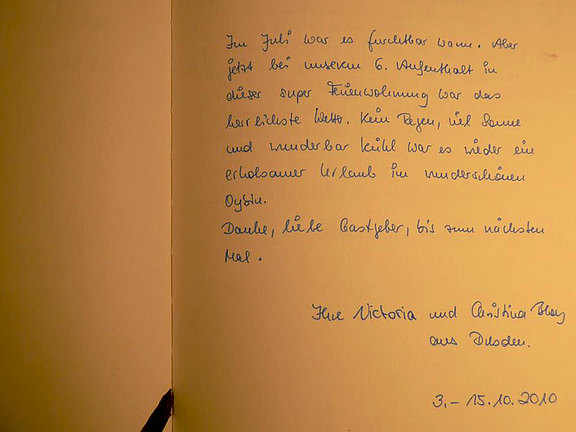 Im Juli war es furchtbar warm. Aber
jetzt bei unserem 6. Aufenthalt in
dieser super Ferienwohnung war das
herrlichste Wetter. Kein Regen, viel Sonne
und wunderbar kühl war es wieder ein
erholsamer Urlaub im wunderschönen
Oybin.
Danke, liebe Gastgeber, bis zum nächsten
Mal.
Ihre Victoria und Christina
aus Dresden.
3. – 15.10.2010